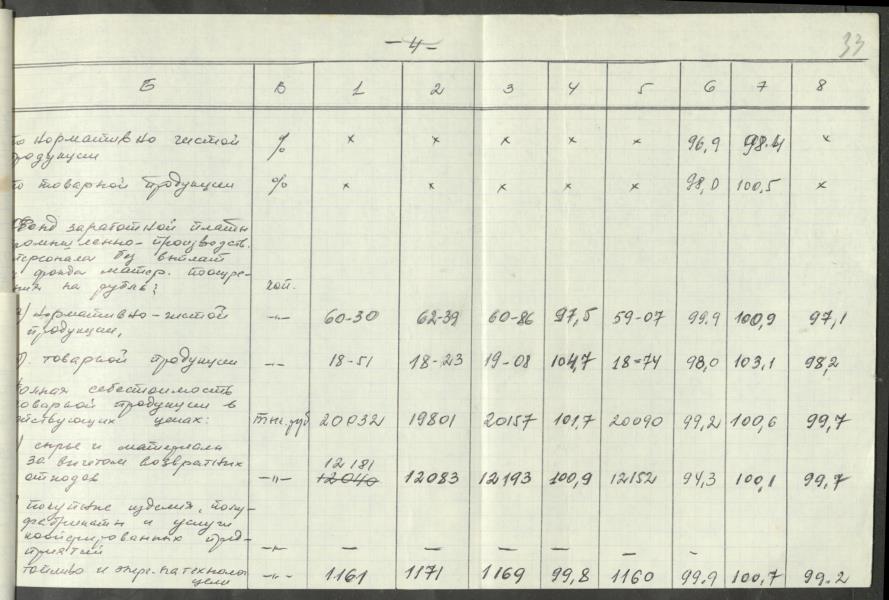 -4-
33
Б В 1 2 3 4 5 6 7 8
по нормативно чистой % х х х х х 96,9 98.4 х
родукции
по товарной продукции % х х х х х 98,0 100,5 х
Фонд заработной платы
ромышленно-производств.
персонала без выплат
фонда матер. поощре-
ния на рубль: коп.
а) нормативно-чистой -"- 60-30 62-39 60-86 97,5 59-07 99.9 100,9 97,1
продукции,
). товарной продукции -"- 18-51 18-23 19-08 104,7 18-74 98,0 103,1 98,2
олная себестоимость
оварной продукции в
йствующих ценах: тыс.руб 20032 19801 20157 101,7 20090 99,2 100,6 99,7
) сырье и материалы
за вычетом возвратных 12181
отходов -"- 12040 12083 12193 100,9 12152 94,3 100,1 99,7
покупные изделия, полу-
фабрикаты и услуги
кооперированных пред-
приятий -"- — — — — — -
топливо и энер. на технолог -"- 1161 1171 1169 99,8 1160 99.9 100,7 99.2
цели